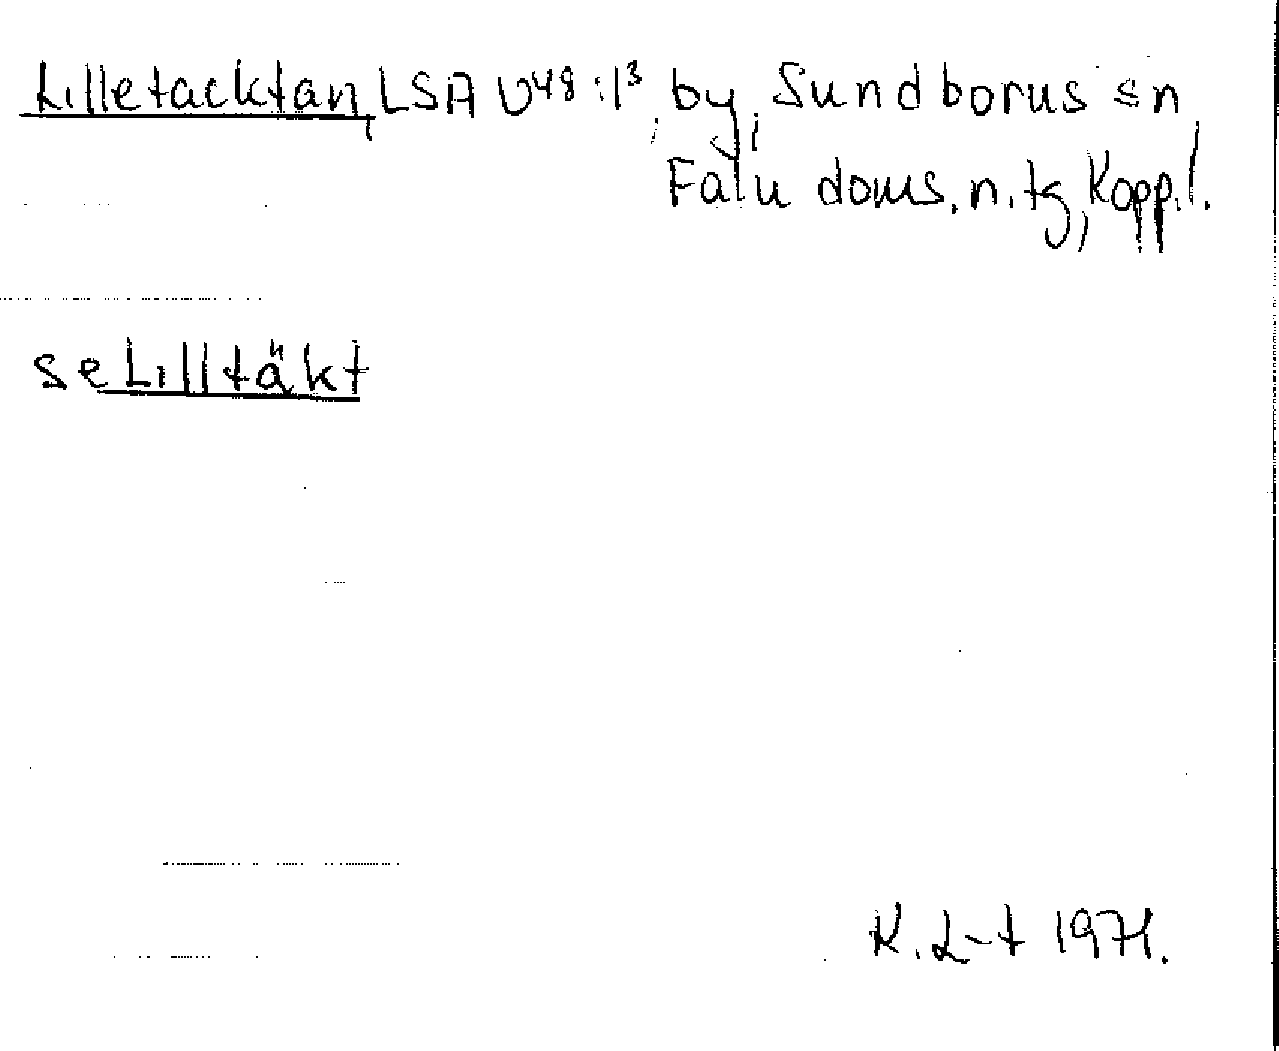 Lilletacktan, LSA U48:1³, by, Sundborns sn,
Falu doms. n. tg, Kopp. l.
se Lilltäkt
K. L-t 1971.